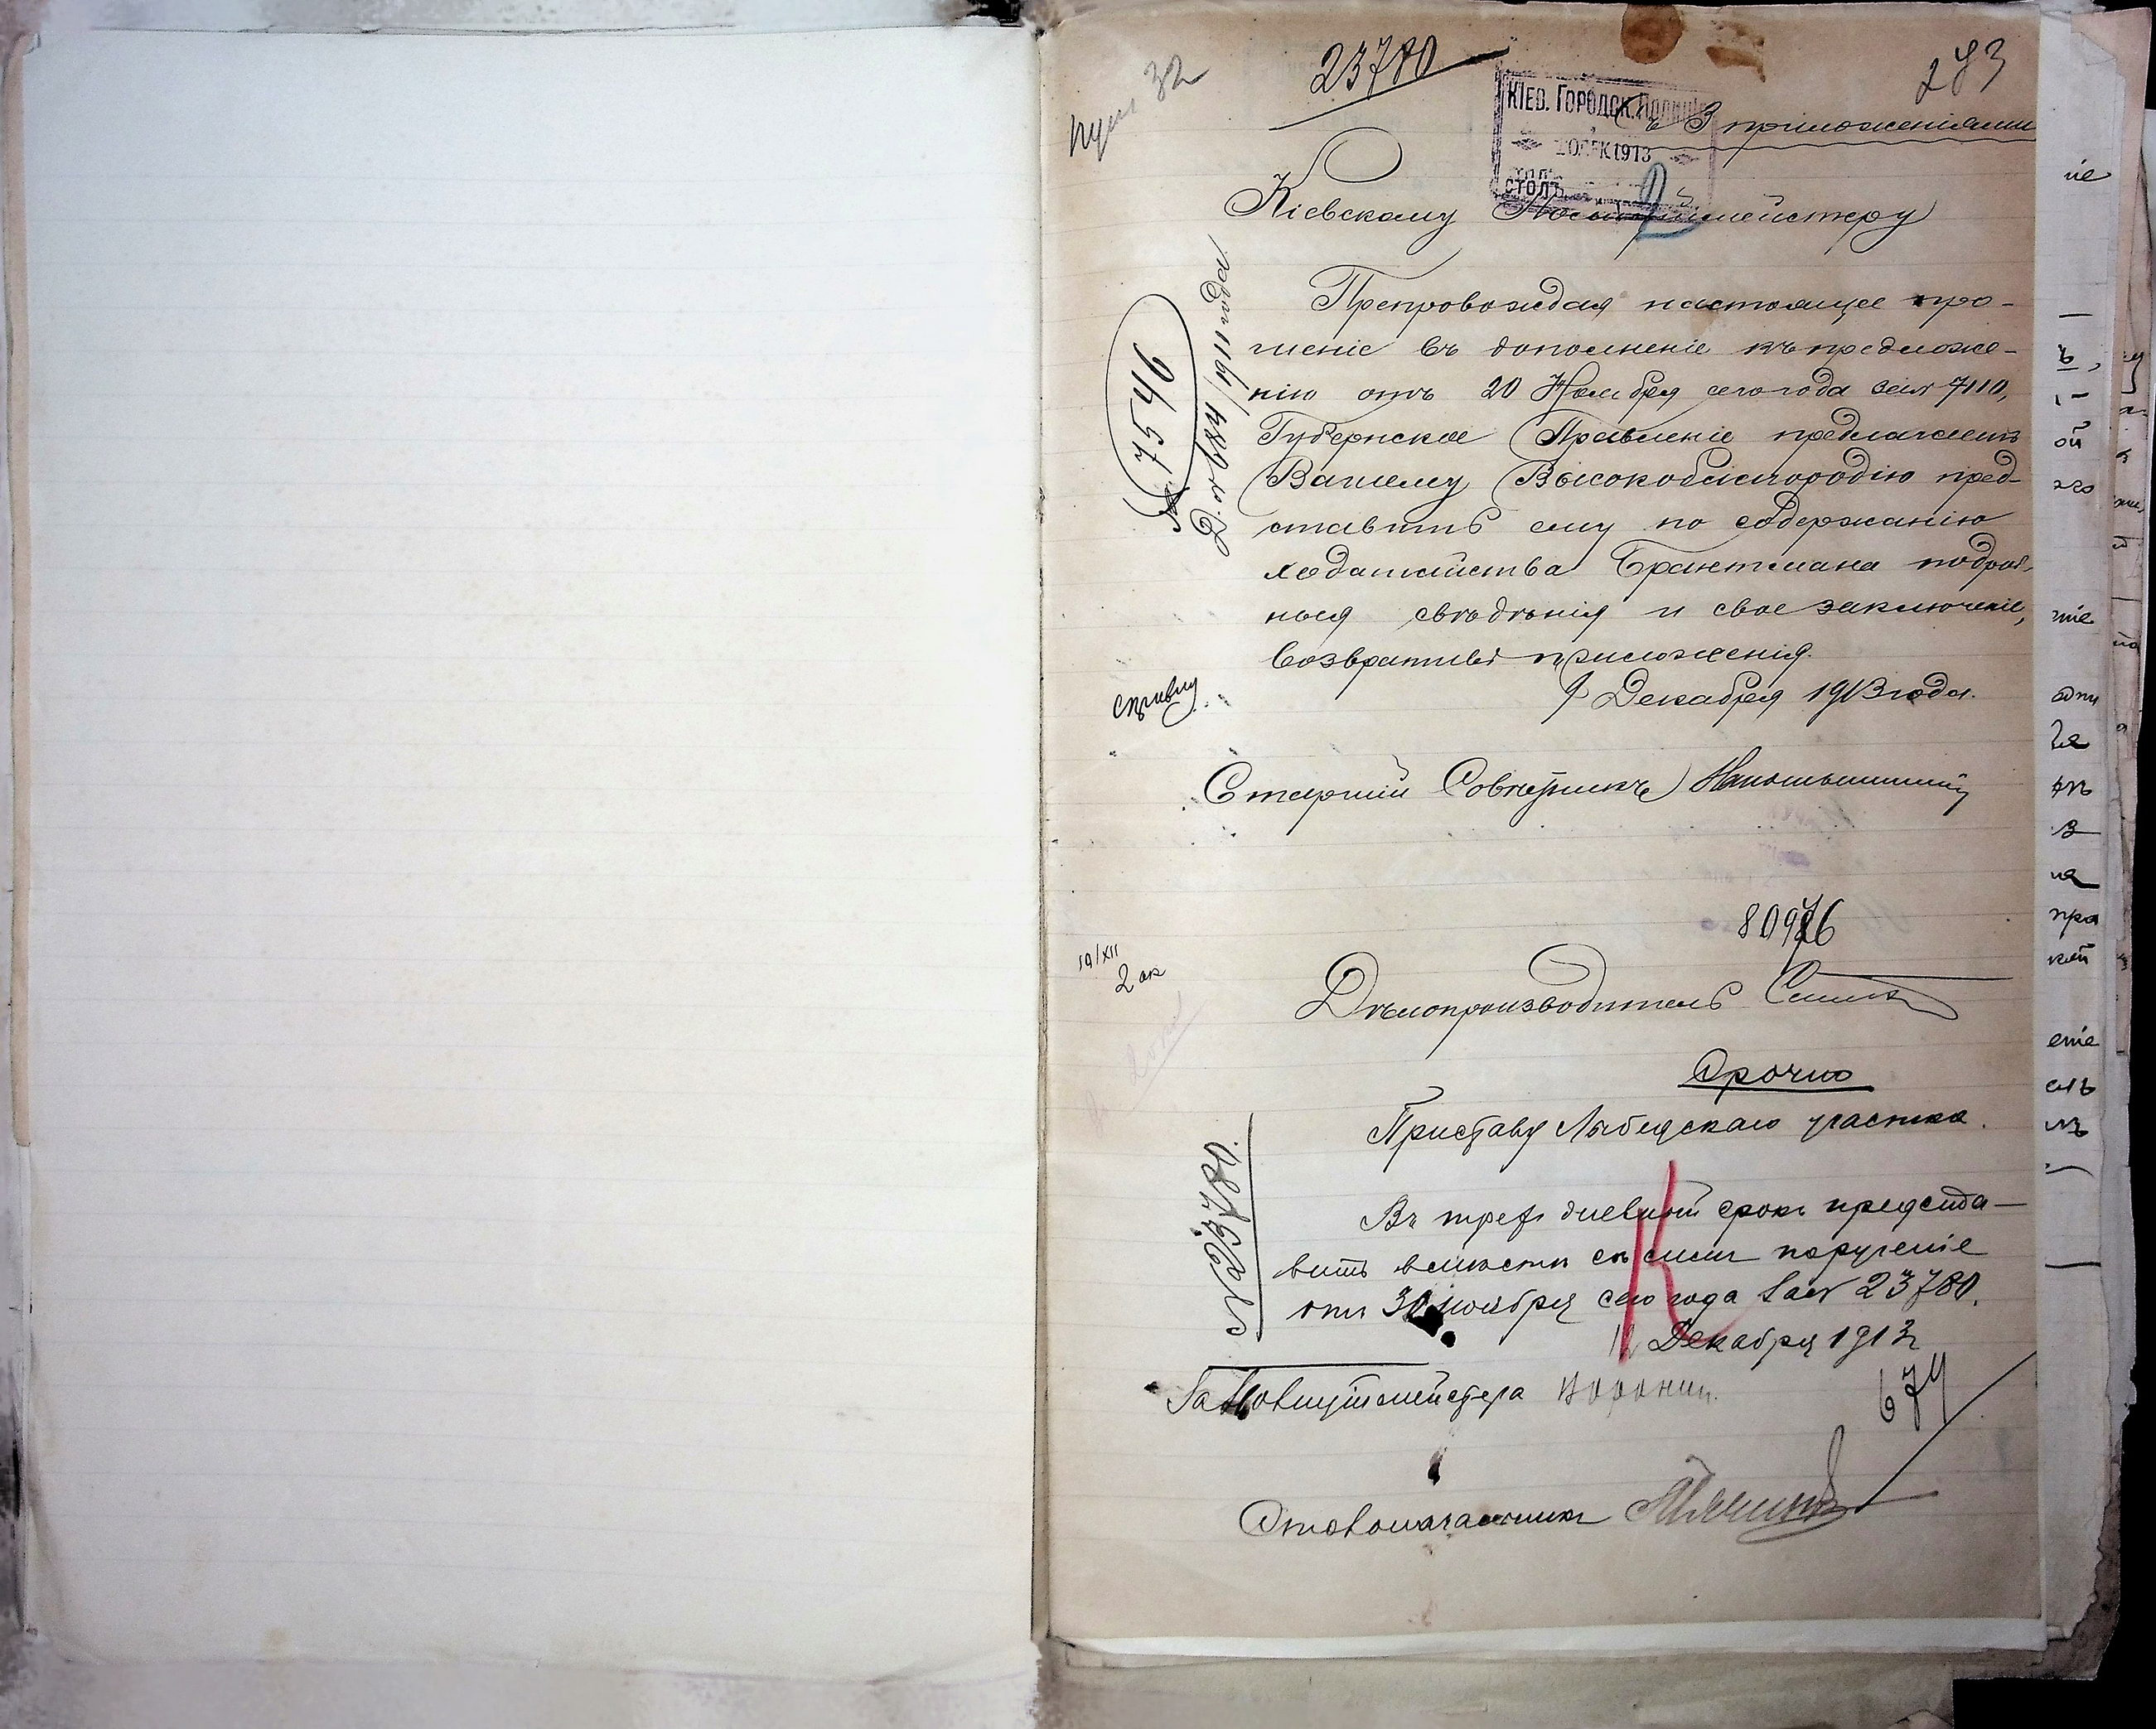 23780
283
32
КІЕВ. ГОРОДСК. ПОЛИЦ
10 ДЕК 1913
СТОЛЪ
2
Съ 3 приложеніями
Кіевскому Полиціймейстеру
№ 7546
Д. № 684/1911 года
Препровождая настоящее про-
шеніе въ дополненіе къ предложе-
нію отъ 20 Ноября сего года за № 7110,
Губернское Правленіе предлагаетъ
Вашему Высокоблагородію пред-
ставить ему по содержанію
ходатайства Брантмана подроб-
ныя свѣдѣнія и свое заключеніе,
возвративъ приложенія.
9 Декабря 1913 года.
справку
Старшій Совѣтникъ
80976
19/XII
2 ок
Дѣлопроизводитель
Срочно
Приставу Лыбедскаго участка.
№ 23780.
Въ трех дневный срокъ предста-
вить вмѣстѣ съ симъ порученіе
отъ 30 ноября сего года за № 23780.
12 Декабря 1913
За Полицiймейстера
674
Столоначальникъ